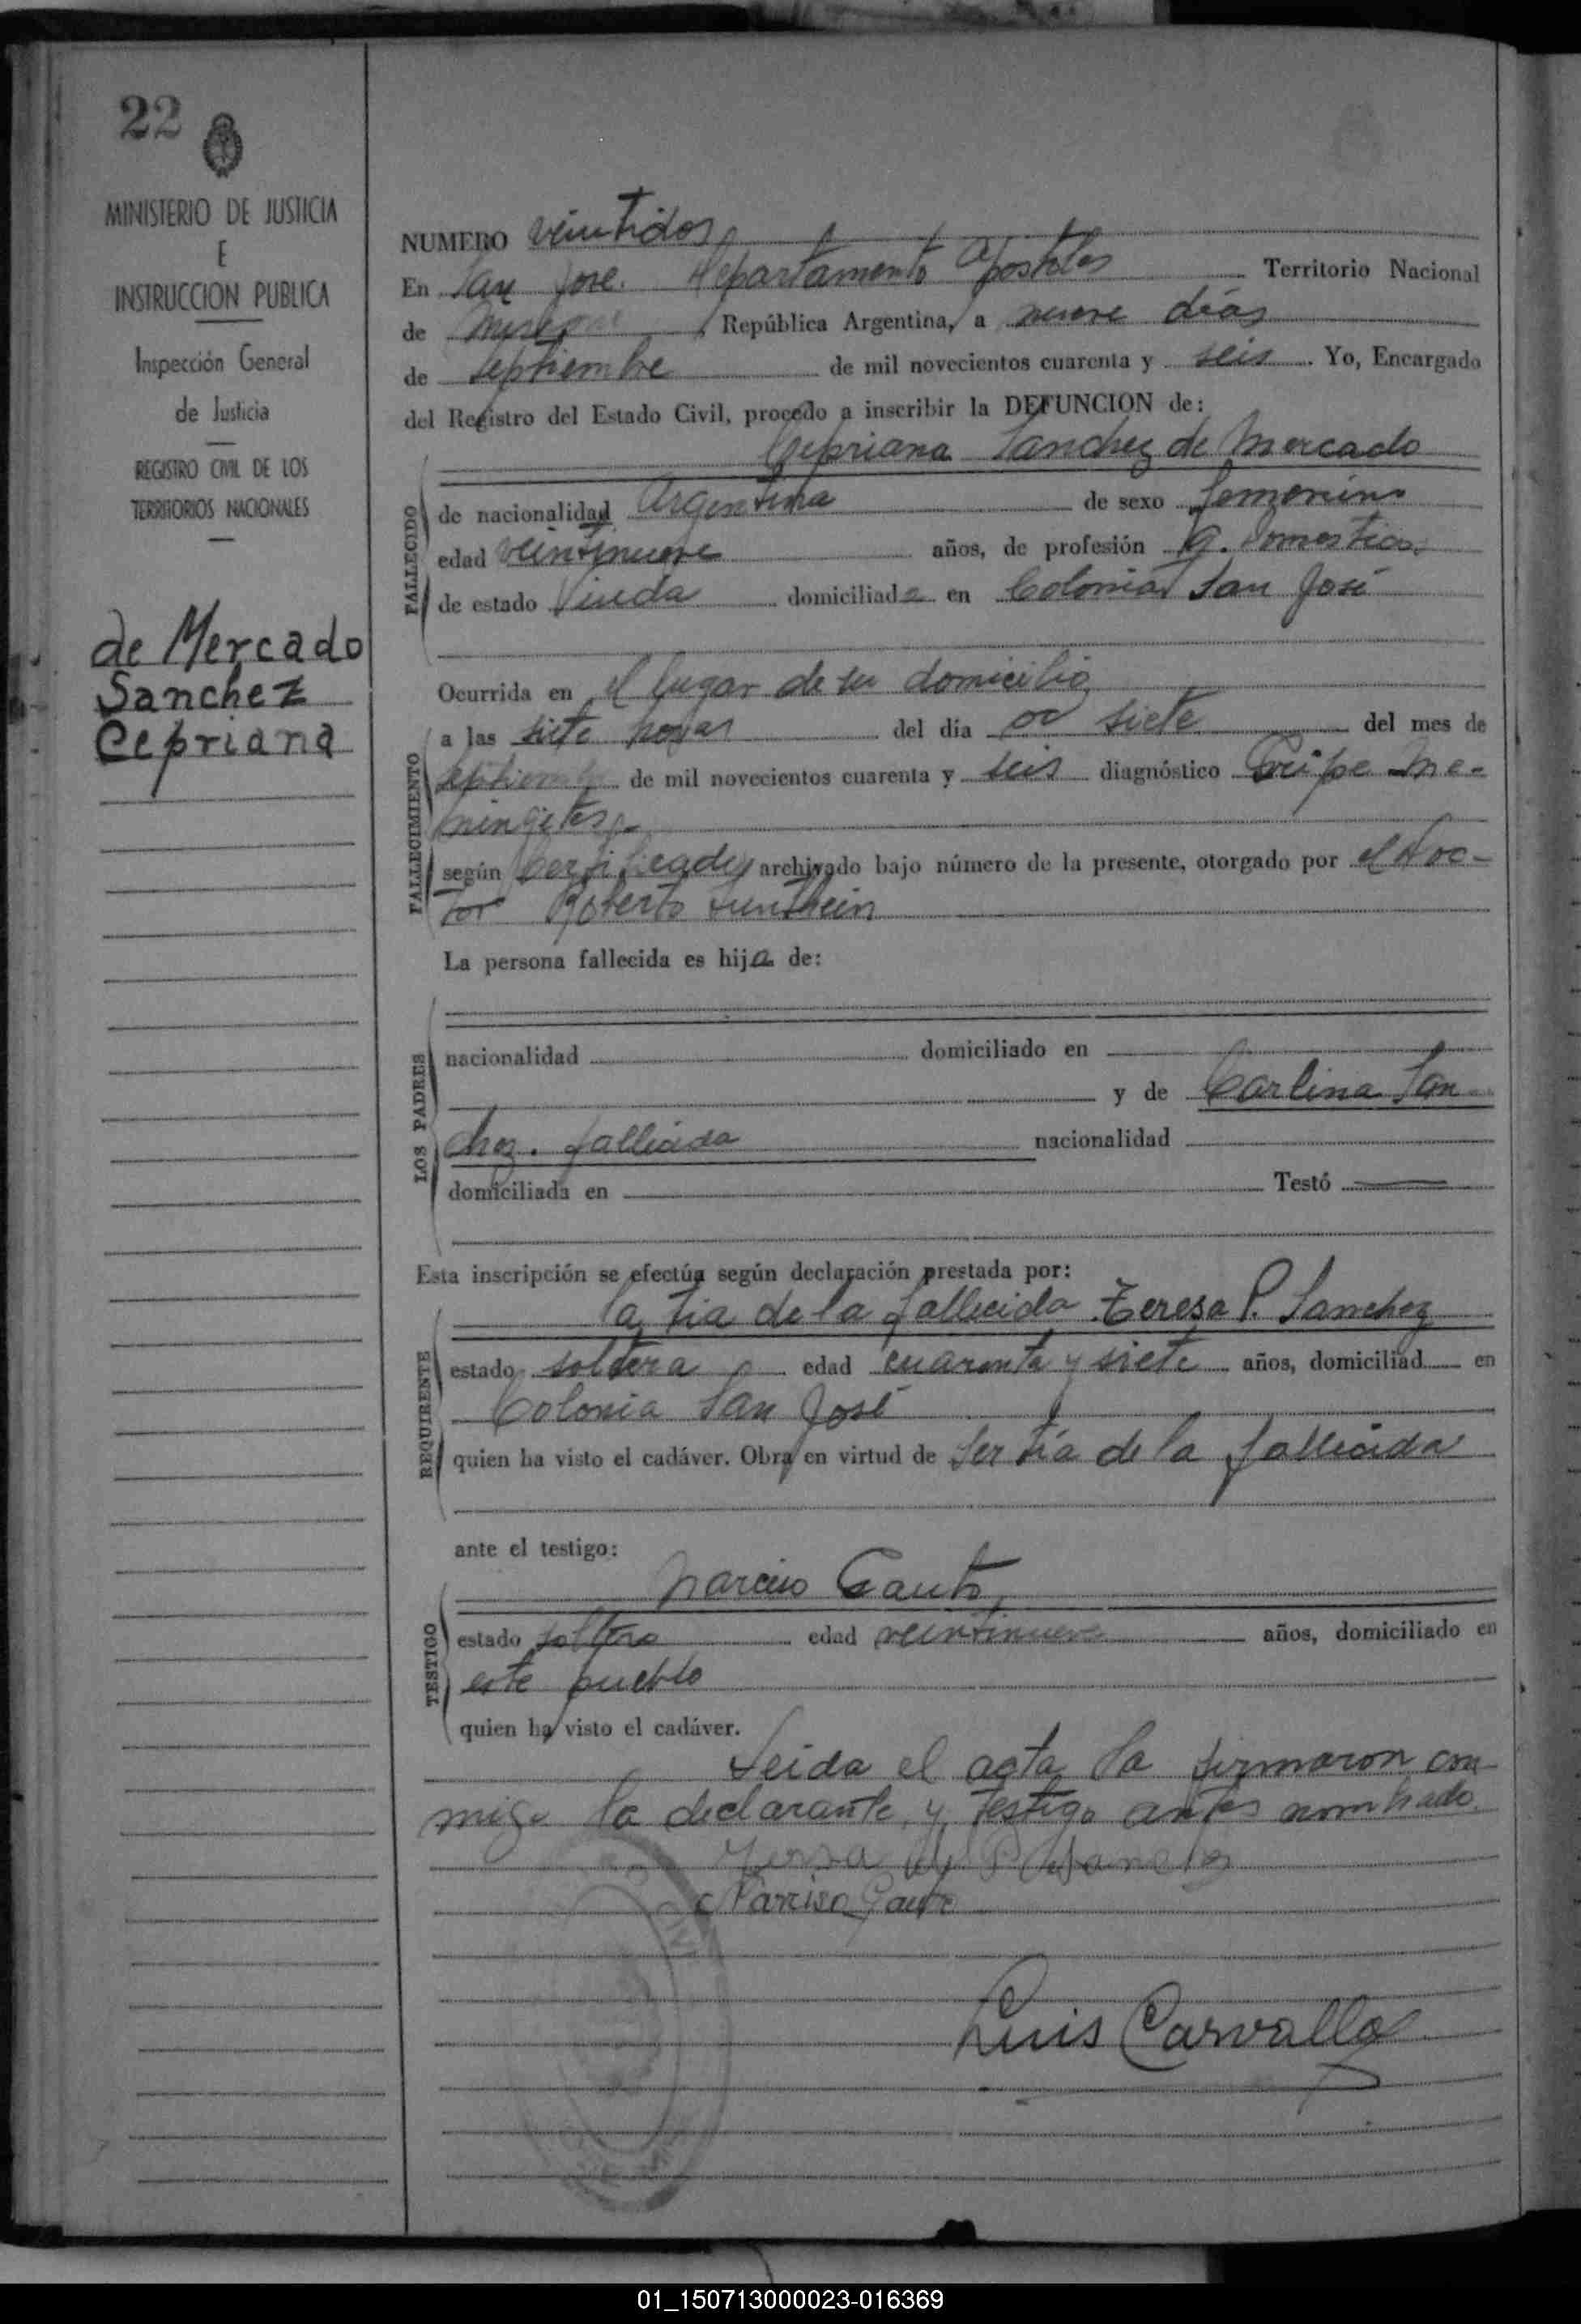 22
MINISTERIO DE JUSTICIA
E
INSTRUCCION PUBLICA
Inspección General
de Justicia
REGISTRO CIVIL DE LOS
TERRITORIOS NACIONALES
de Mercado
Sanchez
Cepriana
NUMERO veintidos
En San José. Departamento Apostoles Territorio Nacional
de Misiones República Argentina, a nueve días
de Septiembre de mil novecientos cuarenta y seis. Yo, Encargado
del Registro del Estado Civil, procedo a inscribir la DEFUNCION de:
Cepriana Sanchez de Mercado
FALLECIDO
de nacionalidad Argentina de sexo femenino
edad veintinueve años, de profesión q. domesticos
de estado Viuda domiciliada en Colonia San José
FALLECIMIENTO
Ocurrida en el lugar de su domicilio
a las siete horas del día siete del mes de
septiembre de mil novecientos cuarenta y seis diagnóstico Gripe Me-
ningites.-
según Certificado archivado bajo número de la presente, otorgado por el Doc-
tor Roberto
La persona fallecida es hija de:
LOS PADRES
nacionalidad domiciliado en
y de Carlina San
chez. fallecida nacionalidad
domiciliada en Testó
Esta inscripción se efectúa según declaración prestada por:
la tia de la fallecida Teresa P. Sanchez
REQUIRENTE
estado soltera edad cuarenta y siete años, domiciliad en
Colonia San José
quien ha visto el cadáver. Obra en virtud de ser tía de la fallecida
ante el testigo:
Narciso Gauto
TESTIGO
estado soltero edad veintinueve años, domiciliado en
este pueblo
quien ha visto el cadáver.
Leida el acta la firmaron con
migo la declarante y testigo antes nombrado.
Narciso Gauto
Luis Carvallo
01_150713000023-016369